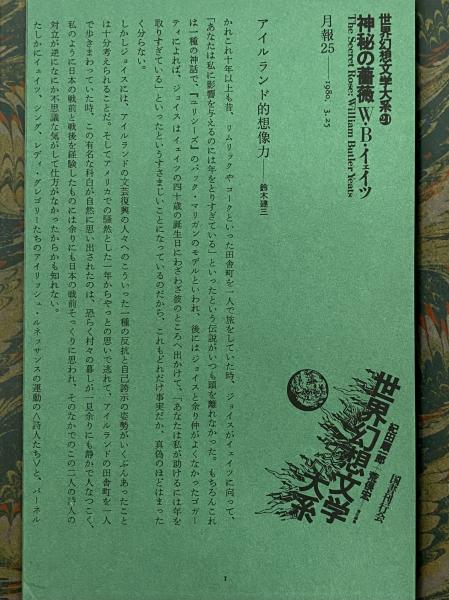 世界幻想文学大系㉔
神秘の薔薇 W・B・イェイツ
The Secret Rose: William Butler Yeats
月報25――1980. 3. 25
世界幻想文学大系
紀田順一郎 荒俣宏
国書刊行会
アイルランド的想像力――鈴木建三
かれこれ十年以上も昔、リムリックやコークといった田舎町を一人で旅をしていた時、ジョイスがイェイツに向って、
「あなたは私に影響を与えるのには年をとりすぎている」といったという伝説がいつも頭を離れなかった。もちろんこれ
は一種の神話で、『ユリシーズ』のバック・マリガンのモデルといわれ、後にはジョイスと余り仲がよくなかったゴガー
ティによれば、ジョイスはイェイツの四十歳の誕生日にわざわざ彼のところへ出かけて、「あなたは私が助けるには年を
取りすぎている」といったというすさまじいことになっているのだから、これもどれだけ事実だか、真偽のほどはまった
く分らない。
しかしジョイスには、アイルランドの文芸復興の人々へのこういった一種の反抗と自己誇示の姿勢がいくぶんあったこと
は十分考えられることだ。そしてアメリカでの騒然とした一年からやっとの思いで逃れて、アイルランドの田舎町を一人
で歩きまわっていた時、この有名な科白が自然に思い出されたのは、恐らく村々の暮しが一見余りにも静かで人なつこく、
私のように日本の戦前と戦後を経験したものには余りにも日本の戦前そっくりに思われ、そのなかでのこの二人の詩人の
対立が逆になにか不思議な気がして仕方がなかったからかも知れない。
たしかにイェイツ、シング、レディ・グレゴリーたちのアイリッシュ・ルネッサンスの運動の〈詩人たち〉と、パーネル
1